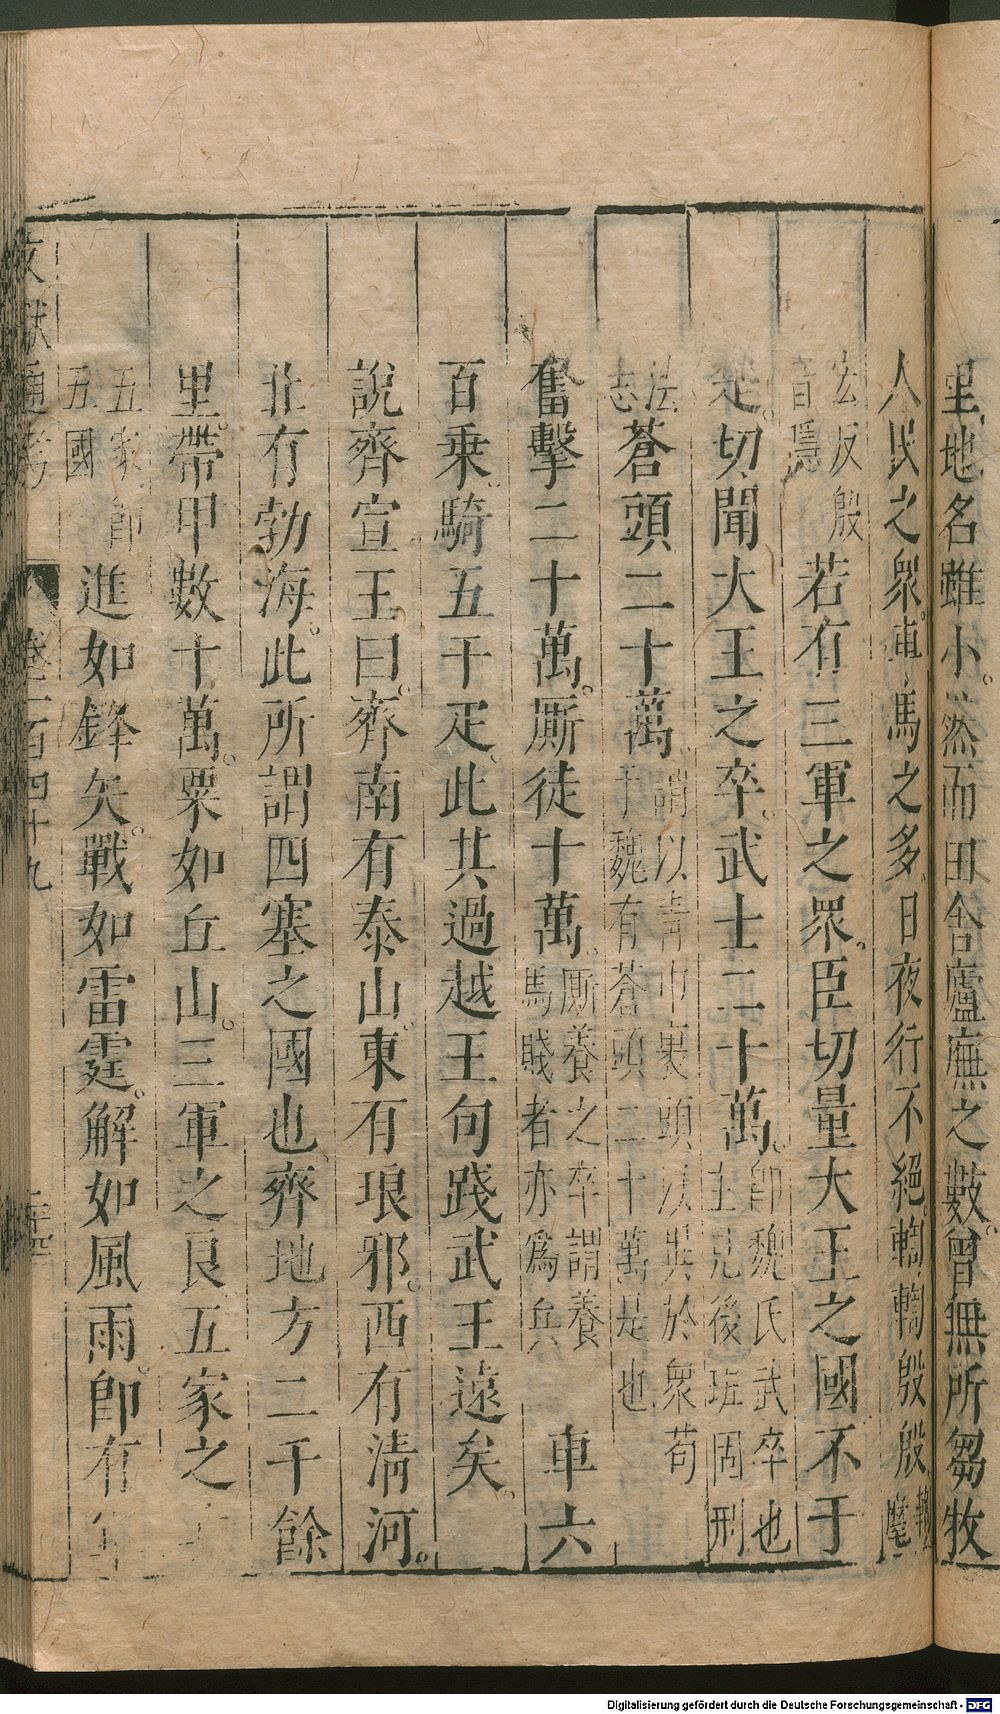 里、地名雖小。然而田舍廬廡之數。曾無所芻牧
人民之衆。車馬之多日夜行不絕。輷輷殷殷輷麾
宏反殷音隱若有三軍之衆。臣切量大王之國不于
楚。切聞大王之卒。武士二十萬。卽魏氏武卒也主見後班固刑
法志蒼頭二十萬。謂以靑巾裹頭以異於衆荀子魏有蒼頭二十萬是也
奮擊二十萬。厮徒十萬。厮養之卒謂養馬賤者亦爲兵車六
百乘。騎五千疋。此其過越王句踐武王遠矣。
說齊宣王曰。齊南有泰山。東有琅邪。西有淸河。
北有勃海。此所謂四塞之國也。齊地方二千餘
里。帶甲數十萬。粟如丘山。三軍之良五家之
五家卽五國進如鋒矢。戰如雷霆。解如風雨。卽有
文獻通考 卷一百四十九
Digitalisierung gefördert durch die Deutsche Forschungsgemeinschaft - DFG